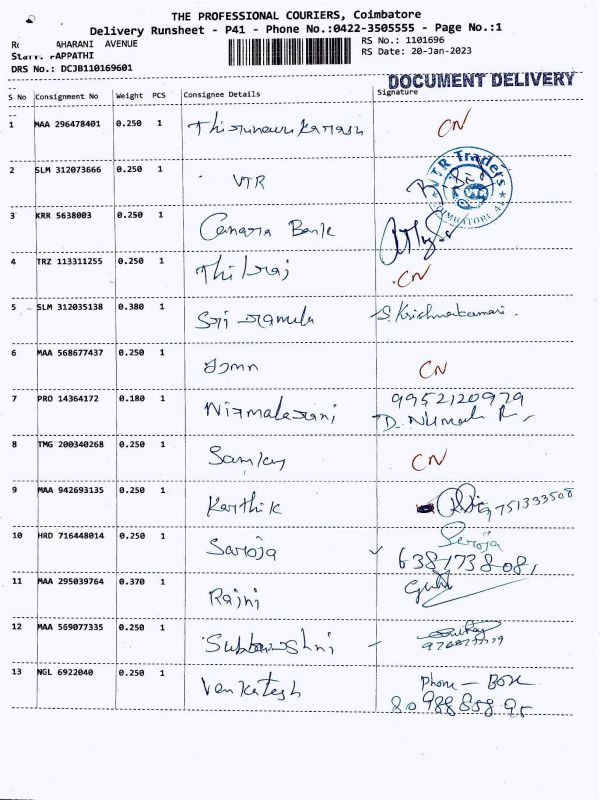 THE PROFESSIONAL COURIERS, Coimbatore
Delivery Runsheet - P41 - Phone No.:0422-3505555 - Page No.:1
AHARANI AVENUE
RS No.: 1101696
PAPPATHI
RS Date: 20-Jan-2023
DRS No.: DCJB110169601
DOCUMENT DELIVERY
S No Consignment No Weight PCS Consignee Details Signature
1 MAA 296478401 0.250 1 CN
2 SLM 312073666 0.250 1 VTR
VTR Traders
COIMBATORE
3 KRR 5638003 0.250 1 Canara Bank
4 TRZ 113311255 0.250 1 Thilraj CN
5 SLM 312035138 0.380 1 Sri S. Krishnakumari.
6 MAA 568677437 0.250 1 CN
7 PRO 14364172 0.180 1 Nirmalarani 9952120979
8 TMG 200340268 0.250 1 CN
9 MAA 942693135 0.250 1 Karthik 9751333508
10 HRD 716448014 0.250 1 Saroja Saroja
6381738081
11 MAA 295039764 0.370 1 Rajni
12 MAA 569077335 0.250 1
13 NGL 6922040 0.250 1 Venkatesh Phone - Box